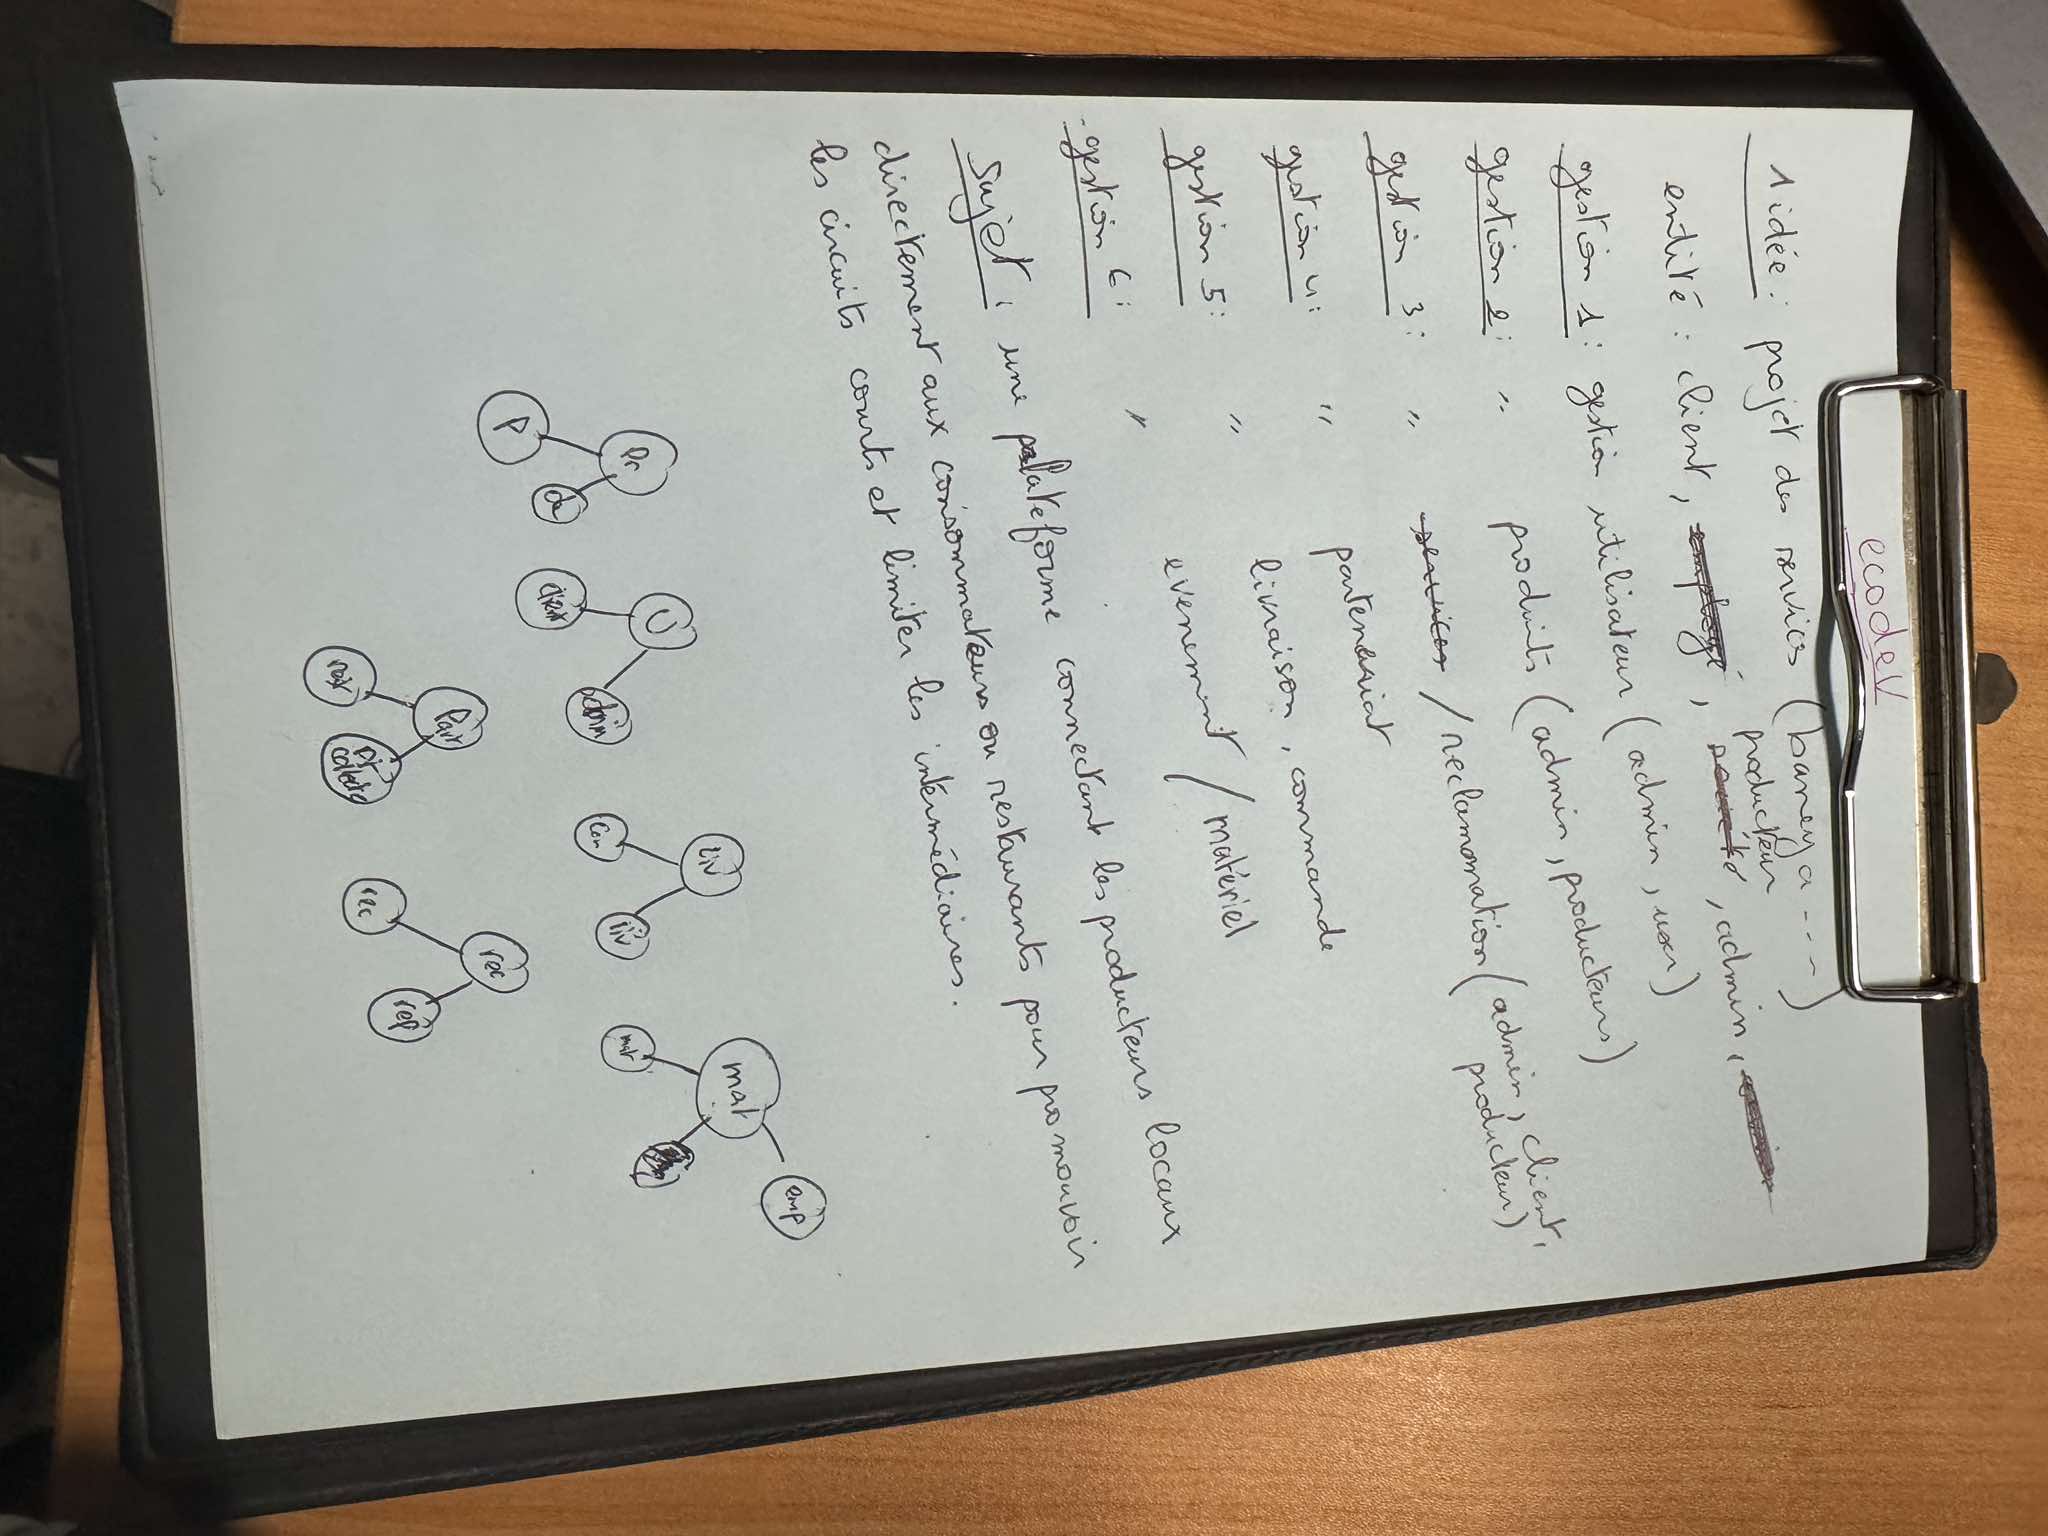 ecodev
1 idée : projet des services (baneya - - - )
entité : client, producteur, admin,
gestion 1 : gestion utilisateur (admin, user)
gestion 2 : " produits (admin, producteurs)
gestion 3 : " services / reclamomation (admin, client, producteur)
gestion 4 : " partenariat
gestion 5 : " livraison, commande
gestion 6 : " evenement / matériel
Sujet : une plateforme connectant les producteurs locaux
directement aux consommateurs ou restaurants pour promouvoir
les circuits courts et limiter les intermédiaires.
Pr
P
U
client
admin
Liv
Com
liv
mat
mat
emp
Par
rest
rec
rec
rep